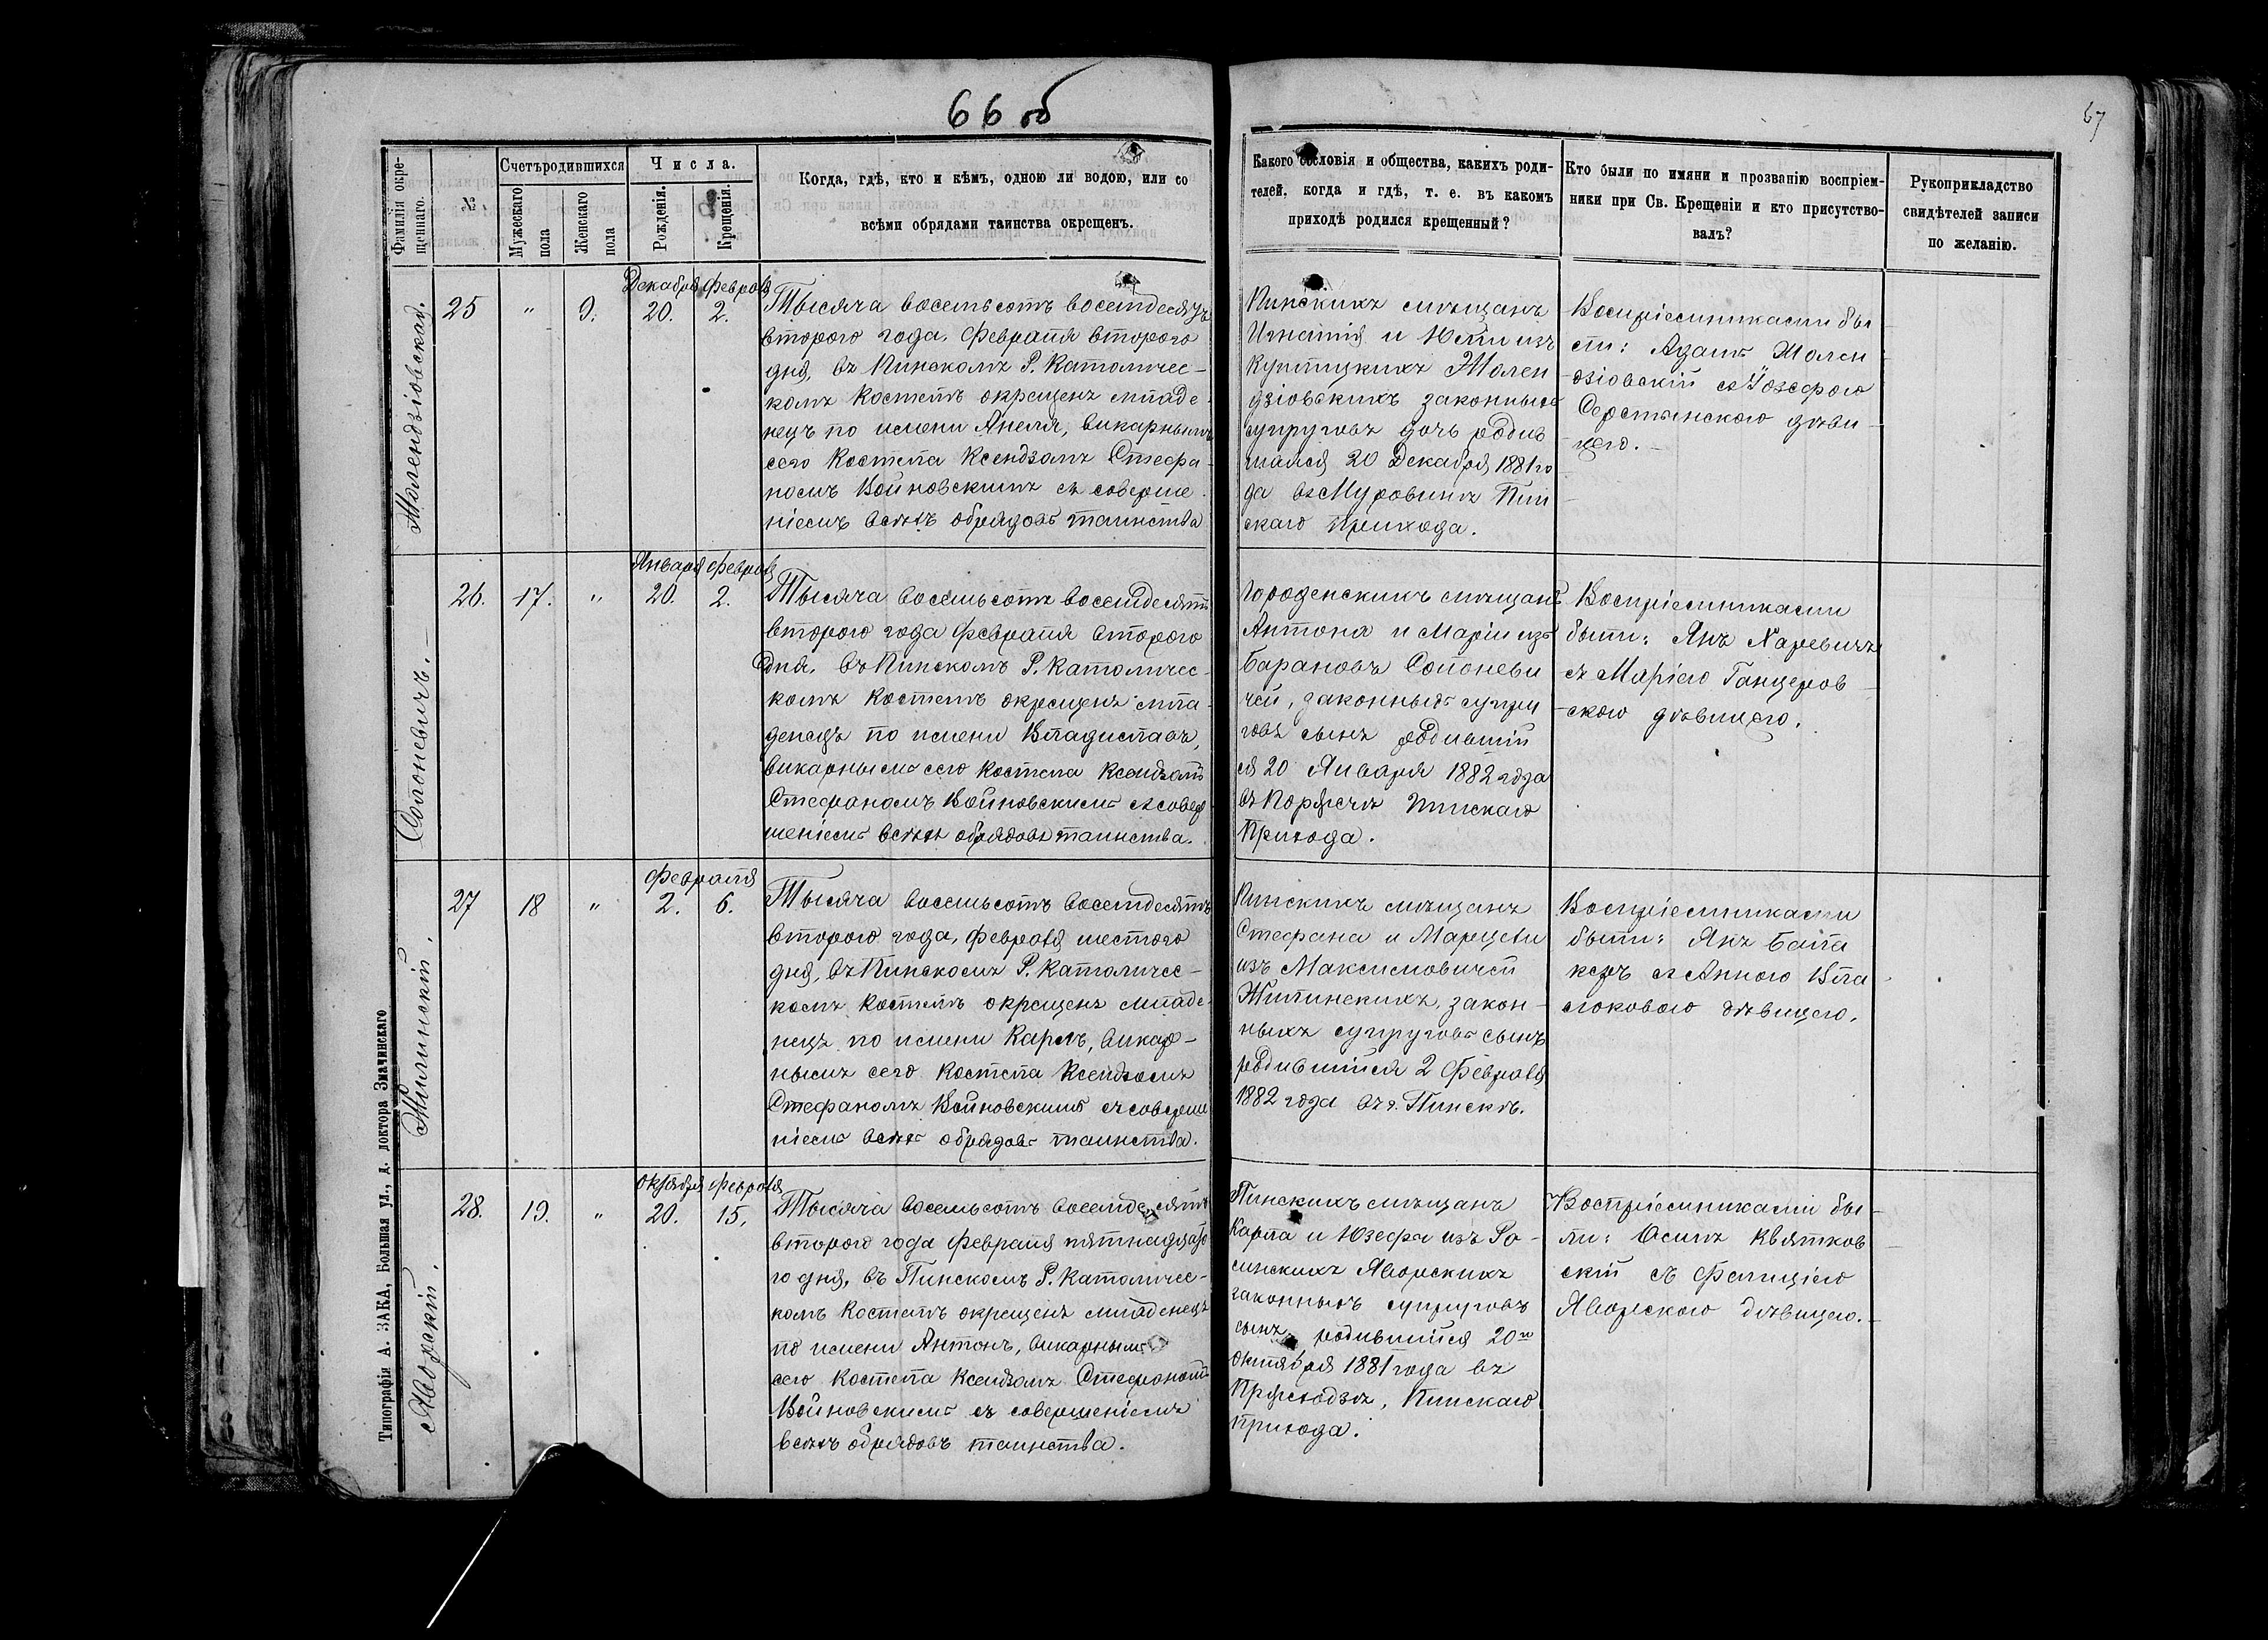 66 об
67
Фамилія окре-
щеннаго.
№
Счетъ родившихся
Мужескаго
пола
Женскаго
пола
Числа.
Рожденія.
Крещенія.
Когда, гдѣ, кто и кѣмъ, одною ли водою, или со
всѣми обрядами таинства окрещенъ.
Какого сословія и общества, какихъ роди-
телей, когда и гдѣ, т. е. въ какомъ
приходѣ родился крещенный?
Кто были по имяни и прозванію воспріем-
ники при Св. Крещеніи и кто присутство-
валъ?
Рукоприкладство
свидѣтелей записи
по желанію.
Жолендзіовская.
25
"
9.
Декабря
20.
Февраля
2.
Тысяча восемьсотъ восемдесятъ
второго года, Февраля второго
дня, въ Пинскомъ Р. Католичес-
комъ Костелѣ окрещенъ младе-
нецъ по имени Анеля, викарнымъ
сего Костела Ксендзомъ Стефа-
номъ Войновскимъ съ соверше-
ніемъ всѣхъ обрядовъ таинства
Пинскихъ мѣщанъ
Игнатія и Юліи изъ
Жолен
дзіовскихъ законныхъ
супруговъ дочь родив
шаяся 20 Декабря 1881 го
да въ Муровинѣ Пин
скаго Прихода.
Воспріемниками бы
ли: Адамъ Жолен
дзіовскій съ Іозефою
дѣви
цею.
Солоневичъ.
26.
17.
"
Января
20.
Февраля
2.
Тысяча восемьсотъ восемдесятъ
второго года Февраля второго
дня, въ Пинскомъ Р. Католичес-
комъ Костелѣ окрещенъ мла-
денецъ по имени Владиславъ,
викарнымъ сего Костела Ксендзомъ
Стефаномъ Войновскимъ съ совер-
шеніемъ всѣхъ обрядовъ таинства.
Городенскихъ мѣщанъ
Антона и Маріи изъ
Барановъ Солоневи
чей, законныхъ супру
говъ сынъ родившій
ся 20 Января 1882 года
въ Порѣчьѣ Пинскаго
Прихода.
Воспріемниками
были: Янъ Харевичъ
съ Маріею Ганцеров-
скою дѣвицею.
Жилинскій.
27
18
"
Февраля
2.
6.
Тысяча восемьсотъ восемдесятъ
второго года, Февраля шестого
дня, въ Пинскомъ Р. Католичес-
комъ Костелѣ окрещенъ младе-
нецъ по имени Карлъ, викар-
нымъ сего Костела Ксендзомъ
Стефаномъ Войновскимъ съ соверше
ніемъ всѣхъ обрядовъ таинства.
Пинскихъ мѣщанъ
Стефана и Марцели
изъ Максимовичей
Жилинскихъ, закон-
ныхъ супруговъ сынъ
родившійся 2 Февраля
1882 года въ г. Пинскѣ.
Воспріемниками
были: Янъ Бала
керъ съ Анною Вла
дѣвицею.
Яворскій.
28.
19.
"
Октября
20.
Февраля
15.
Тысяча восемьсотъ восемдесятъ
второго года Февраля пятнадцато
го дня, въ Пинскомъ Р. Католичес-
комъ Костелѣ окрещенъ младенецъ
по имени Антонъ, викарнымъ
сего Костела Ксендзомъ Стефаномъ
Войновскимъ съ совершеніемъ
всѣхъ обрядовъ таинства.
Пинскихъ мѣщанъ
Карла и Юзефы изъ Ро-
синскихъ Яворскихъ
законныхъ супруговъ
сынъ родившійся 20го
Октября 1881 года въ
Пинскаго
прихода.
Воспріемниками бы-
ли: Осипъ Квятков
скій съ Фелиціею
Яворскою дѣвицею.
Типографія А. ЗАКА, Большая ул., д. доктора Значинскаго